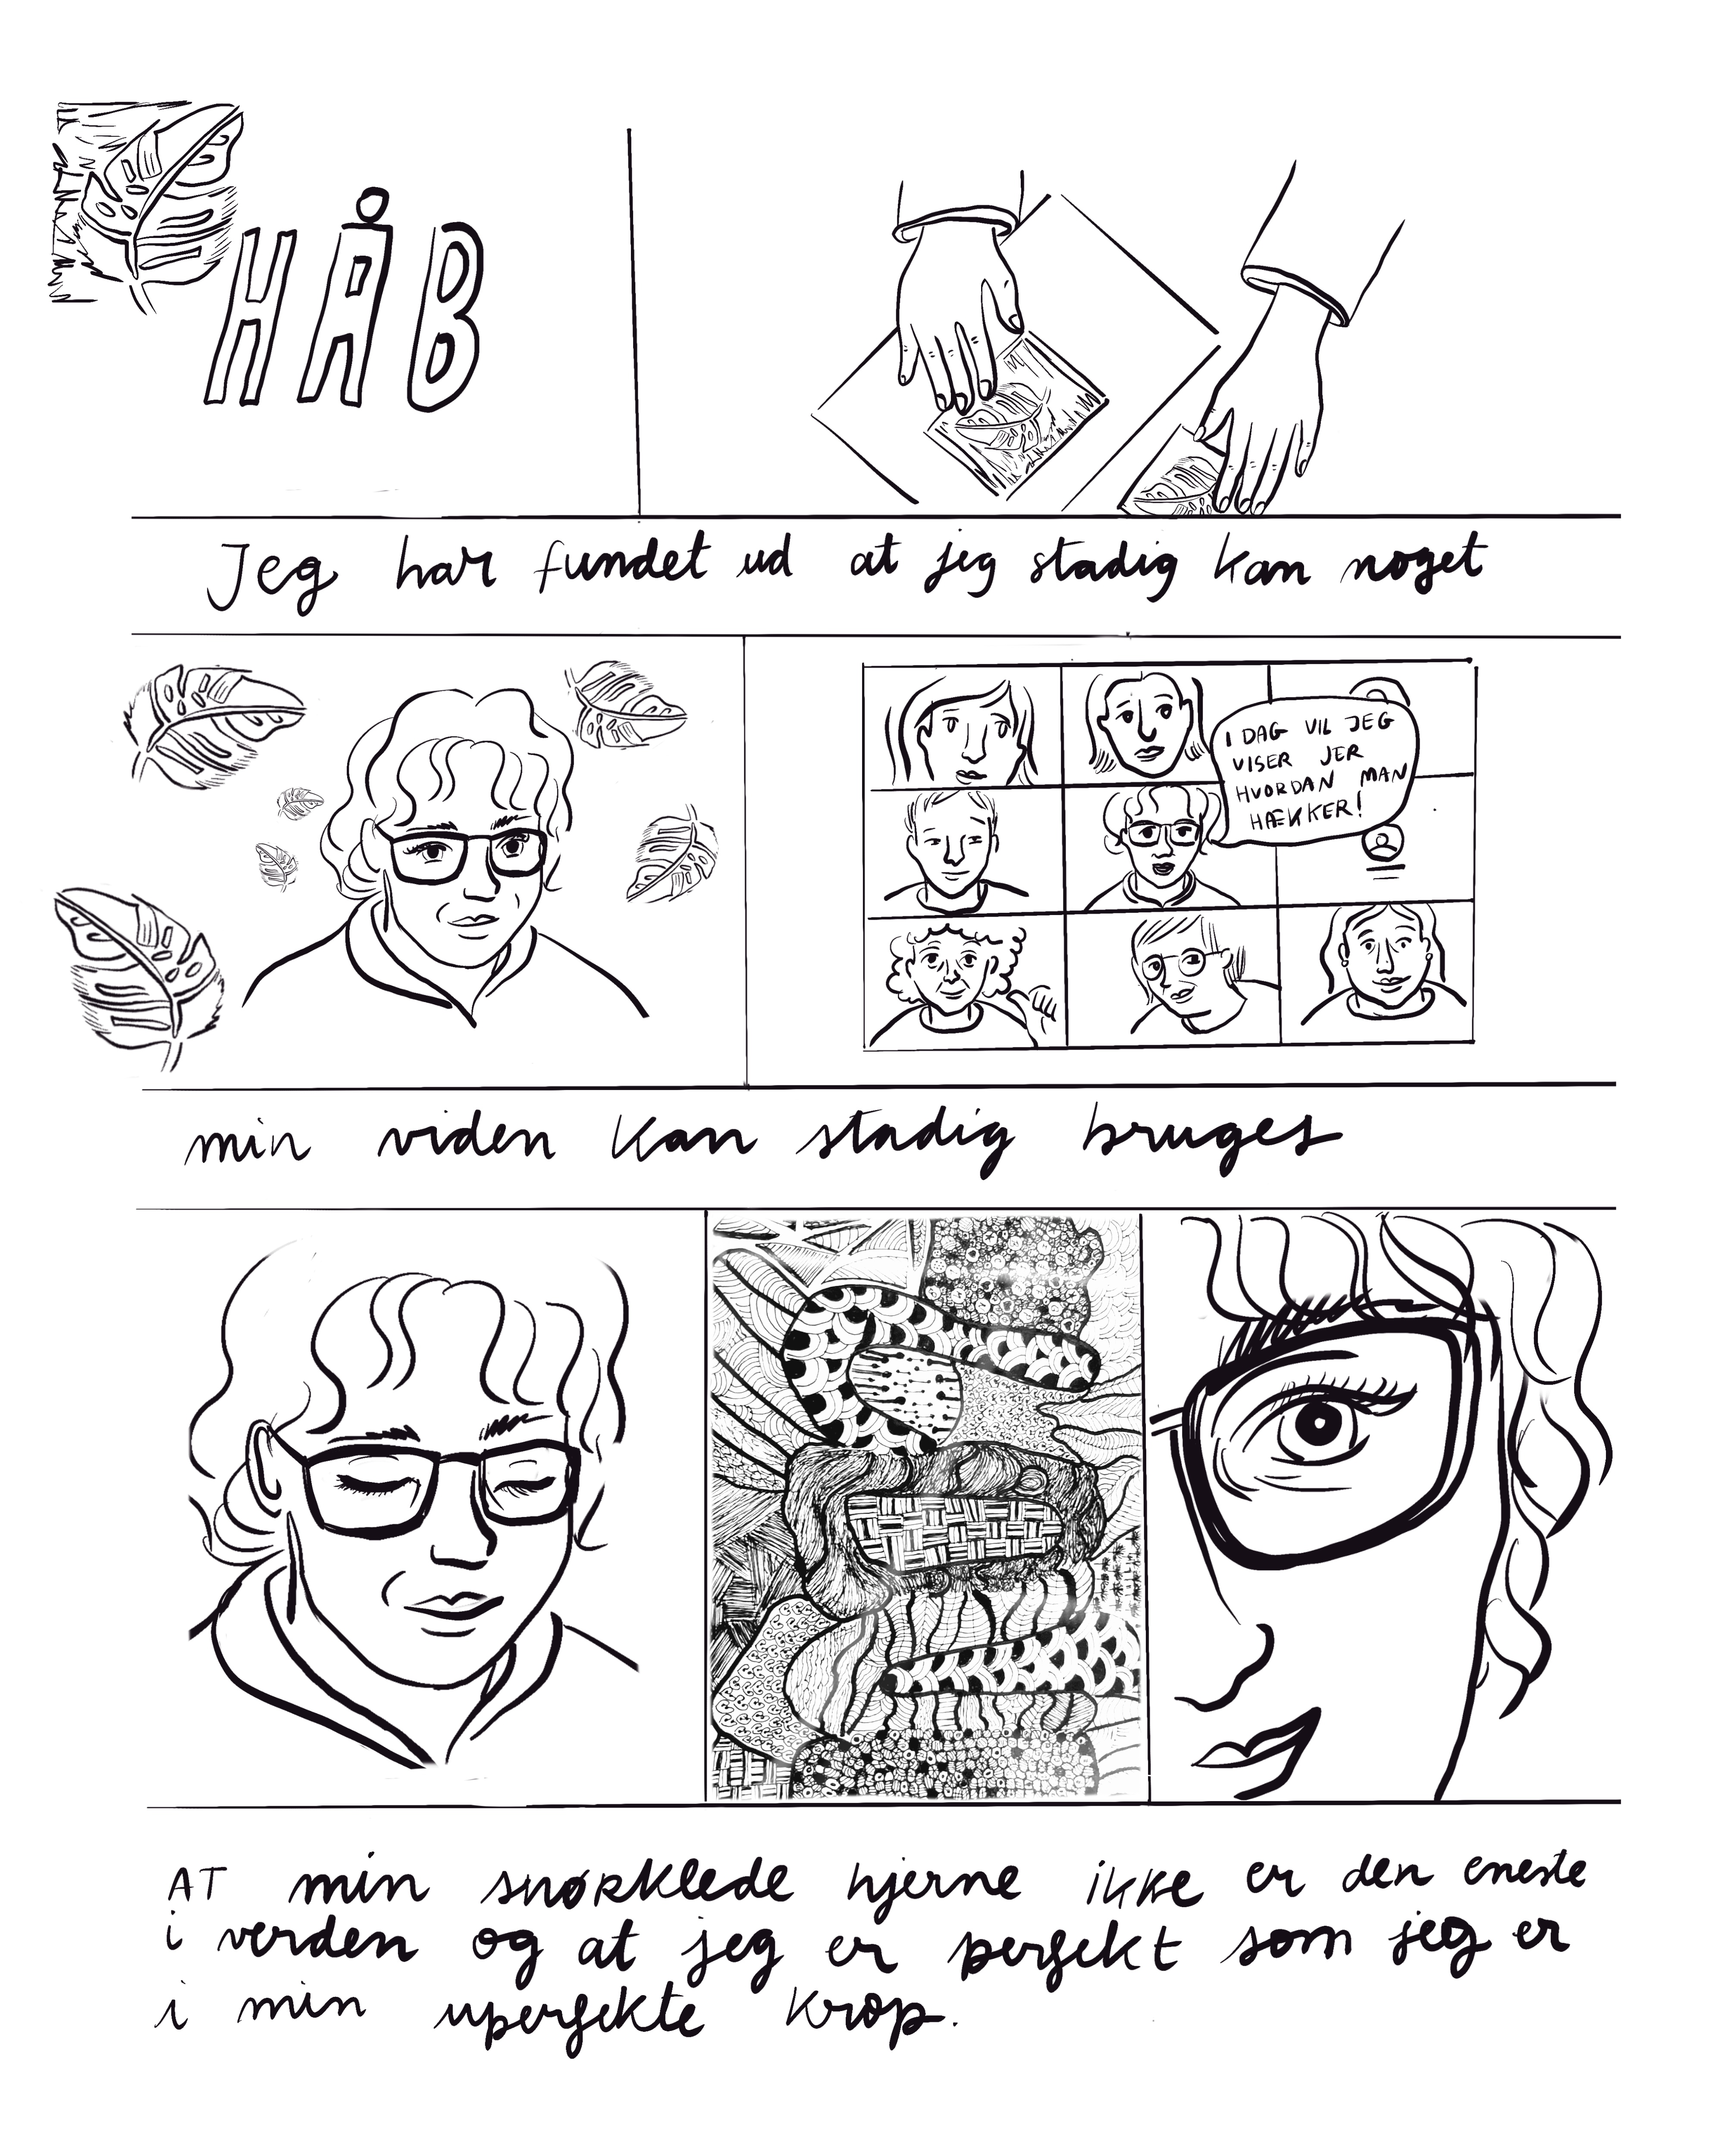 HÅB
Jeg har fundet ud at jeg stadig kan noget
I DAG VIL JEG
VISER JER
HVORDAN MAN
HÆKKER!
min viden kan stadig bruges
AT min snørklede hjerne ikke er den eneste
i verden og at jeg er perfekt som jeg er
i min uperfekte krop.